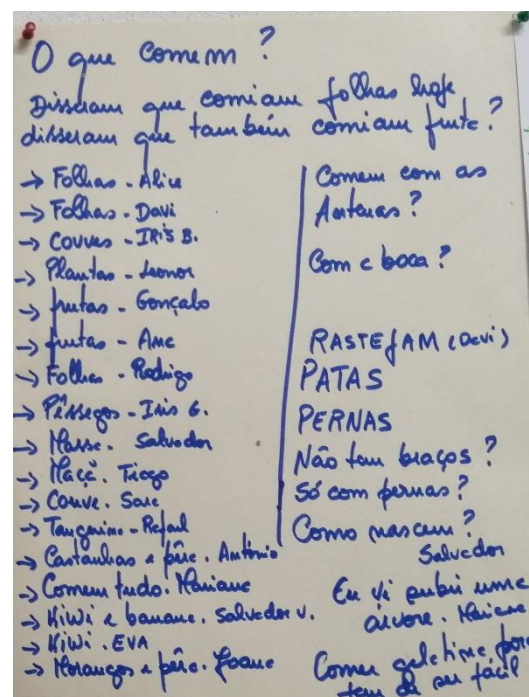 O que comem?
Disseram que comiam folhas hoje
disseram que também comiam fruta?
→ Folhas - Alice
→ Folhas - Davi
→ Couves - IRIS B.
→ Plantas - Leonor
→ frutas - Gonçalo
→ frutas - Ana
→ Folhas - Rodrigo
→ Pêssegos - Iris G.
→ Massa. Salvador
→ Maçã. Tiago
→ Couve. Sara
→ Tangerina - Rafael
→ Castanhas e pêra. António
→ Comem tudo. Mariana
→ Kiwi e banana. Salvador V.
→ Kiwi. EVA
→ Morangos e pêra. Joana
Comem com as
Antenas?
Com a boca?
RASTEJAM (Davi)
PATAS
PERNAS
Não tem braços?
Só com pernas?
Como nascem?
Salvador
Eu vi subir uma
árvore.
Comem gelatina
tem de ser fácil